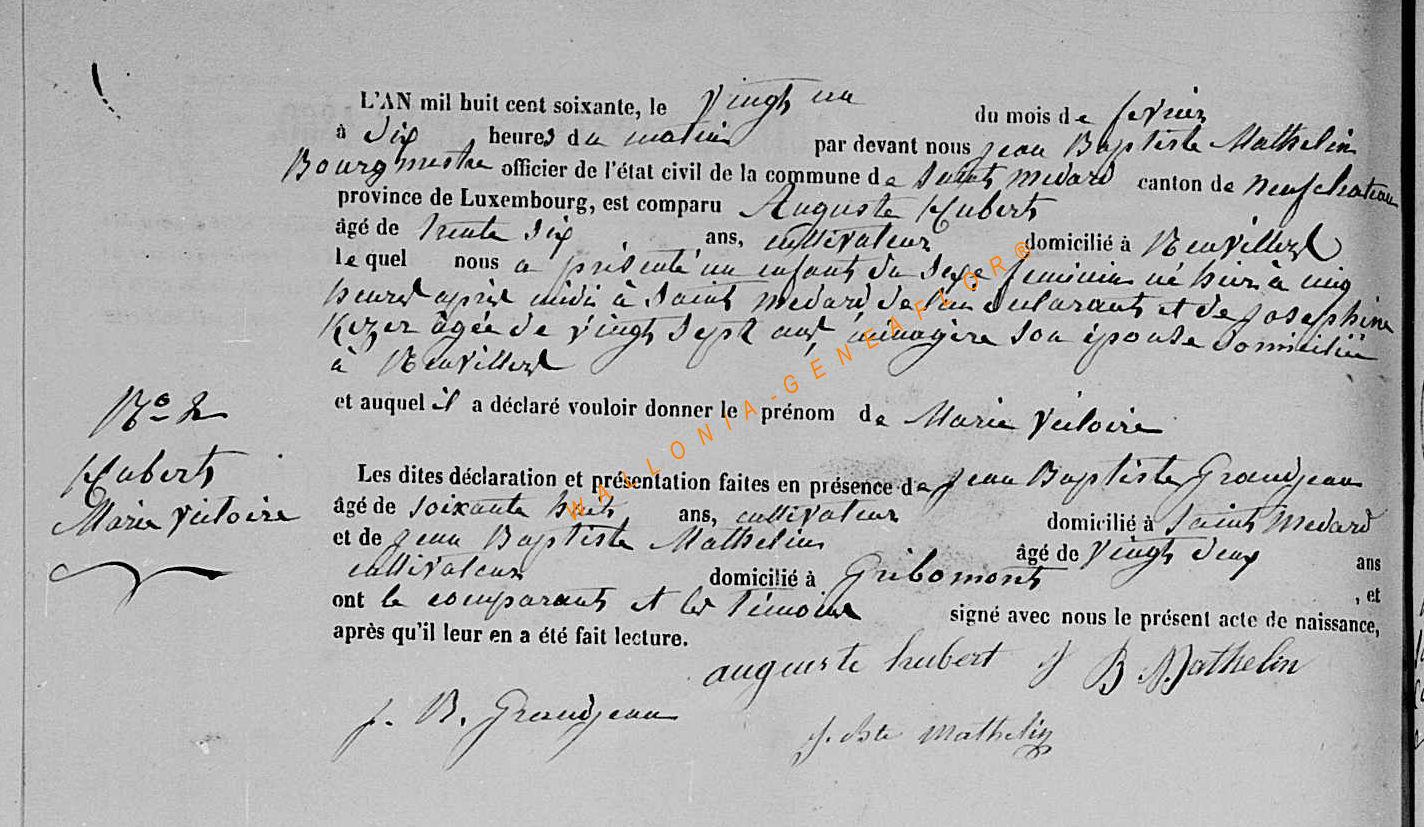 L'AN mil huit cent soixante, le vingt un du mois de fevrier
à dix heures du matin par devant nous jean Baptiste Mathelin
Bourgmestre officier de l'état civil de la commune de Saint medard canton de neufchateau
province de Luxembourg, est comparu Auguste Hubert
âgé de trente six ans, cultivateur domicilié à Neuvillers
lequel nous a présenté un enfant du sexe feminin né hier à cinq
heures après midi à Saint medard de lui déclarant et de Josephine
âgée de vingt sept ans, ménagère son épouse domiciliée
à Neuvillers
et auquel il a déclaré vouloir donner le prénom de Marie Victoire
No 2
Hubert
Marie Victoire
Les dites déclaration et présentation faites en présence de jean Baptiste Grandjean
âgé de soixante huit ans, cultivateur domicilié à Saint Medard
et de jean Baptiste Mathelin âgé de vingt deux ans
cultivateur domicilié à Gribomont , et
ont le comparant et les témoins signé avec nous le présent acte de naissance,
après qu'il leur en a été fait lecture.
auguste hubert J B Mathelin
j. B. Grandjean
j. Bte Mathelin
WALLONIA-GENEAFLOR®